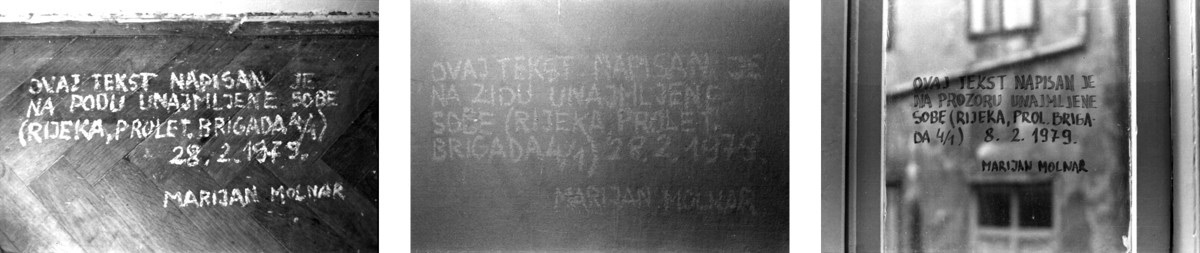 OVAJ TEKST NAPISAN JE
NA PODU UNAJMLJENE SOBE
(RIJEKA, PROLET. BRIGADA 4/1)
28. 2. 1979.
MARIJAN MOLNAR
OVAJ TEKST NAPISAN JE
NA ZIDU UNAJMLJENE
SOBE (RIJEKA, PROLET.
BRIGADA 4/1) 2. 1979.
MARIJAN MOLNAR
OVAJ TEKST NAPISAN JE
NA PROZORU UNAJMLJENE
SOBE (RIJEKA, PROL. BRIGA-
DA 4/1) 8. 2. 1979.
MARIJAN MOLNAR